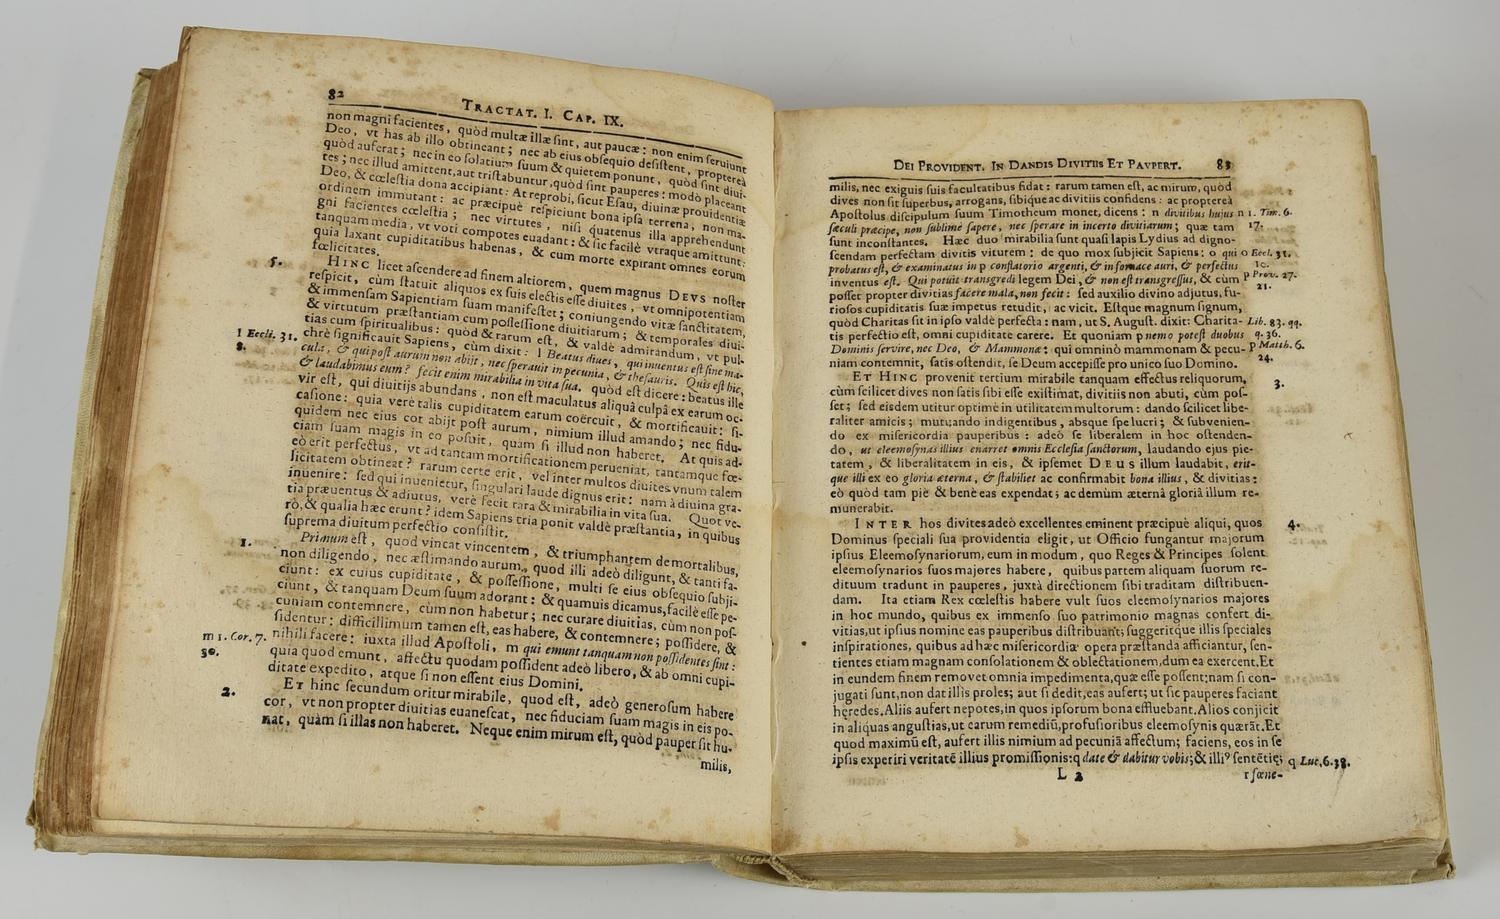 82
TRACTAT. I. CAP. IX.
non magni facientes, quòd multæ illæ sint, aut paucæ: non enim seruiunt
Deo, vt has ab illo obtineant; nec ab eius obsequio desistent, proptereà
quòd auferat; nec in eo solatium suum & quietem ponunt, quòd sint diui-
tes; nec illud amittent, aut tristabuntur, quòd sint pauperes: modò placeant
Deo, & cœlestia dona accipiant: At reprobi, sicut Esau, diuinæ prouidentiæ
ordinem immutant: ac præcipuè respiciunt bona ipsa terrena, non ma-
gni facientes cœlestia; nec virtutes, nisi quatenus illa apprehendunt
tanquam media, vt voti compotes euadant: & sic facilè vtraque amittunt:
quia laxant cupiditatibus habenas, & cum morte expirant omnes eorum
fœlicitates.
5. HINC licet ascendere ad finem altiorem, quem magnus DEVS noster
respicit, cùm statuit aliquos ex suis electis esse diuites, vt omnipotentiam
& immensam Sapientiam suam manifestet; coniungendo vitæ sanctitatem,
& virtutum præstantiam cum possessione diuitiarum; & temporales diui-
tias cum spiritualibus: quòd & rarum est, & valdè admirandum, vt pul-
l Eccli. 31. chrè significauit Sapiens, cùm dixit: l Beatus diues, qui inuentus est sine ma-
8. cula, & qui post aurum non abijt, nec sperauit in pecunia, & thesauris. Quis est hic,
& laudabimus eum? fecit enim mirabilia in vita sua. quòd est dicere: beatus ille
vir est, qui diuitijs abundans, non est maculatus aliquâ culpâ ex earum oc-
casione: quia verè talis cupiditatem earum coërcuit, & mortificauit: si-
quidem nec eius cor abijt post aurum, nimium illud amando; nec fidu-
ciam suam magis in eo posuit, quàm si illud non haberet. At quis ad-
eò erit perfectus, vt ad tantam mortificationem perueniat, tantamque fœ-
licitatem obtineat? rarum certè erit, vel inter multos diuites vnum talem
inuenire: sed qui inuenietur, singulari laude dignus erit: nam à diuina gra-
tia præuentus & adiutus, verè fecit rara & mirabilia in vita sua. Quot ve-
rò, & qualia hæc erunt? idem Sapiens tria ponit valdè præstantia, in quibus
suprema diuitum perfectio consistit.
1. Primum est, quod vincat vincentem, & triumphantem de mortalibus,
non diligendo, nec æstimando aurum, quod illi adeò diligunt, & tanti fa-
ciunt: ex cuius cupiditate, & possessione, multi se eius obsequio subji-
ciunt, & tanquam Deum suum adorant: & quamuis dicamus, facilè esse pe-
cuniam contemnere, cùm non habetur; nec curare diuitias, cùm non pos-
sidentur: difficillimum tamen est, eas habere, & contemnere; possidere, &
m 1. Cor. 7. nihili facere: iuxta illud Apostoli, m qui emunt tanquam non possidentes sint:
30. quia quod emunt, affectu quodam possident adeò libero, & ab omni cupi-
ditate expedito, atque si non essent eius Domini.
2. ET hinc secundum oritur mirabile, quod est, adeò generosum habere
cor, vt non propter diuitias euanescat, nec fiduciam suam magis in eis po-
nat, quàm si illas non haberet. Neque enim mirum est, quòd pauper sit hu-
milis,
DEI PROVIDENT. IN DANDIS DIVITIIS ET PAVPERT. 83
milis, nec exiguis suis facultatibus fidat: rarum tamen est, ac mirum, quòd
dives non sit superbus, arrogans, sibique ac divitiis confidens: ac proptereà
Apostolus discipulum suum Timotheum monet, dicens: n divitibus hujus n 1. Tim. 6.
sæculi præcipe, non sublimè sapere, nec sperare in incerto divitiarum; quæ tam 17.
sunt inconstantes. Hæc duo mirabilia sunt quasi lapis Lydius ad digno-
scendam perfectam divitis virtutem: de quo mox subjicit Sapiens: o qui o Eccl. 31.
probatus est, & examinatus in p conflatorio argenti, & in fornace auri, & perfectus 10.
inventus est. Qui potuit transgredi legem Dei, & non est transgressus, & cùm p Prov. 27.
posset propter divitias facere mala, non fecit: sed auxilio divino adjutus, fu- 21.
riosos cupiditatis suæ impetus retudit, ac vicit. Estque magnum signum,
quòd Charitas sit in ipso valdè perfecta: nam, ut S. August. dixit: Charita- Lib. 83. qq.
tis perfectio est, omni cupiditate carere. Et quoniam p nemo potest duobus q. 36.
Dominis servire, nec Deo, & Mammonæ: qui omninò mammonam & pecu- p Matth. 6.
niam contemnit, satis ostendit, se Deum accepisse pro unico suo Domino. 24.
ET HINC provenit tertium mirabile tanquam effectus reliquorum, 3.
cùm scilicet dives non satis sibi esse existimat, divitiis non abuti, cùm pos-
set; sed eisdem utitur optimè in utilitatem multorum: dando scilicet libe-
raliter amicis; mutuando indigentibus, absque spe lucri; & subvenien-
do ex misericordia pauperibus: adeò se liberalem in hoc ostenden-
do, ut eleemosynas illius enarret omnis Ecclesia sanctorum, laudando ejus pie-
tatem, & liberalitatem in eis, & ipsemet DEUS illum laudabit, erit-
que illi ex eo gloria æterna, & stabiliet ac confirmabit bona illius, & divitias:
eò quòd tam piè & benè eas expendat; ac demùm æternâ gloriâ illum re-
munerabit.
INTER hos divites adeò excellentes eminent præcipuè aliqui, quos 4.
Dominus speciali sua providentia eligit, ut Officio fungantur majorum
ipsius Eleemosynariorum, eum in modum, quo Reges & Principes solent
eleemosynarios suos majores habere, quibus partem aliquam suorum re-
dituum tradunt in pauperes, juxtà directionem sibi traditam distribuen-
dam. Ita etiam Rex cœlestis habere vult suos eleemosynarios majores
in hoc mundo, quibus ex immenso suo patrimonio magnas confert di-
vitias, ut ipsius nomine eas pauperibus distribuant; suggeritque illis speciales
inspirationes, quibus ad hæc misericordiæ opera præstanda afficiantur, sen-
tientes etiam magnam consolationem & oblectationem, dum ea exercent. Et
in eundem finem removet omnia impedimenta, quæ esse possent: nam si con-
jugati sunt, non dat illis proles; aut si dedit, eas aufert; ut sic pauperes faciant
hęredes. Aliis aufert nepotes, in quos ipsorum bona effluebant. Alios conjicit
in aliquas angustias, ut earum remediũ, profusioribus eleemosynis quærāt. Et
quod maximũ est, aufert illis nimium ad pecuniā affectum; faciens, eos in se
ipsis experiri veritatē illius promissionis: q date & dabitur vobis; & illi⁹ sentētię; q Luc. 6. 38.
L 2 r fœne-